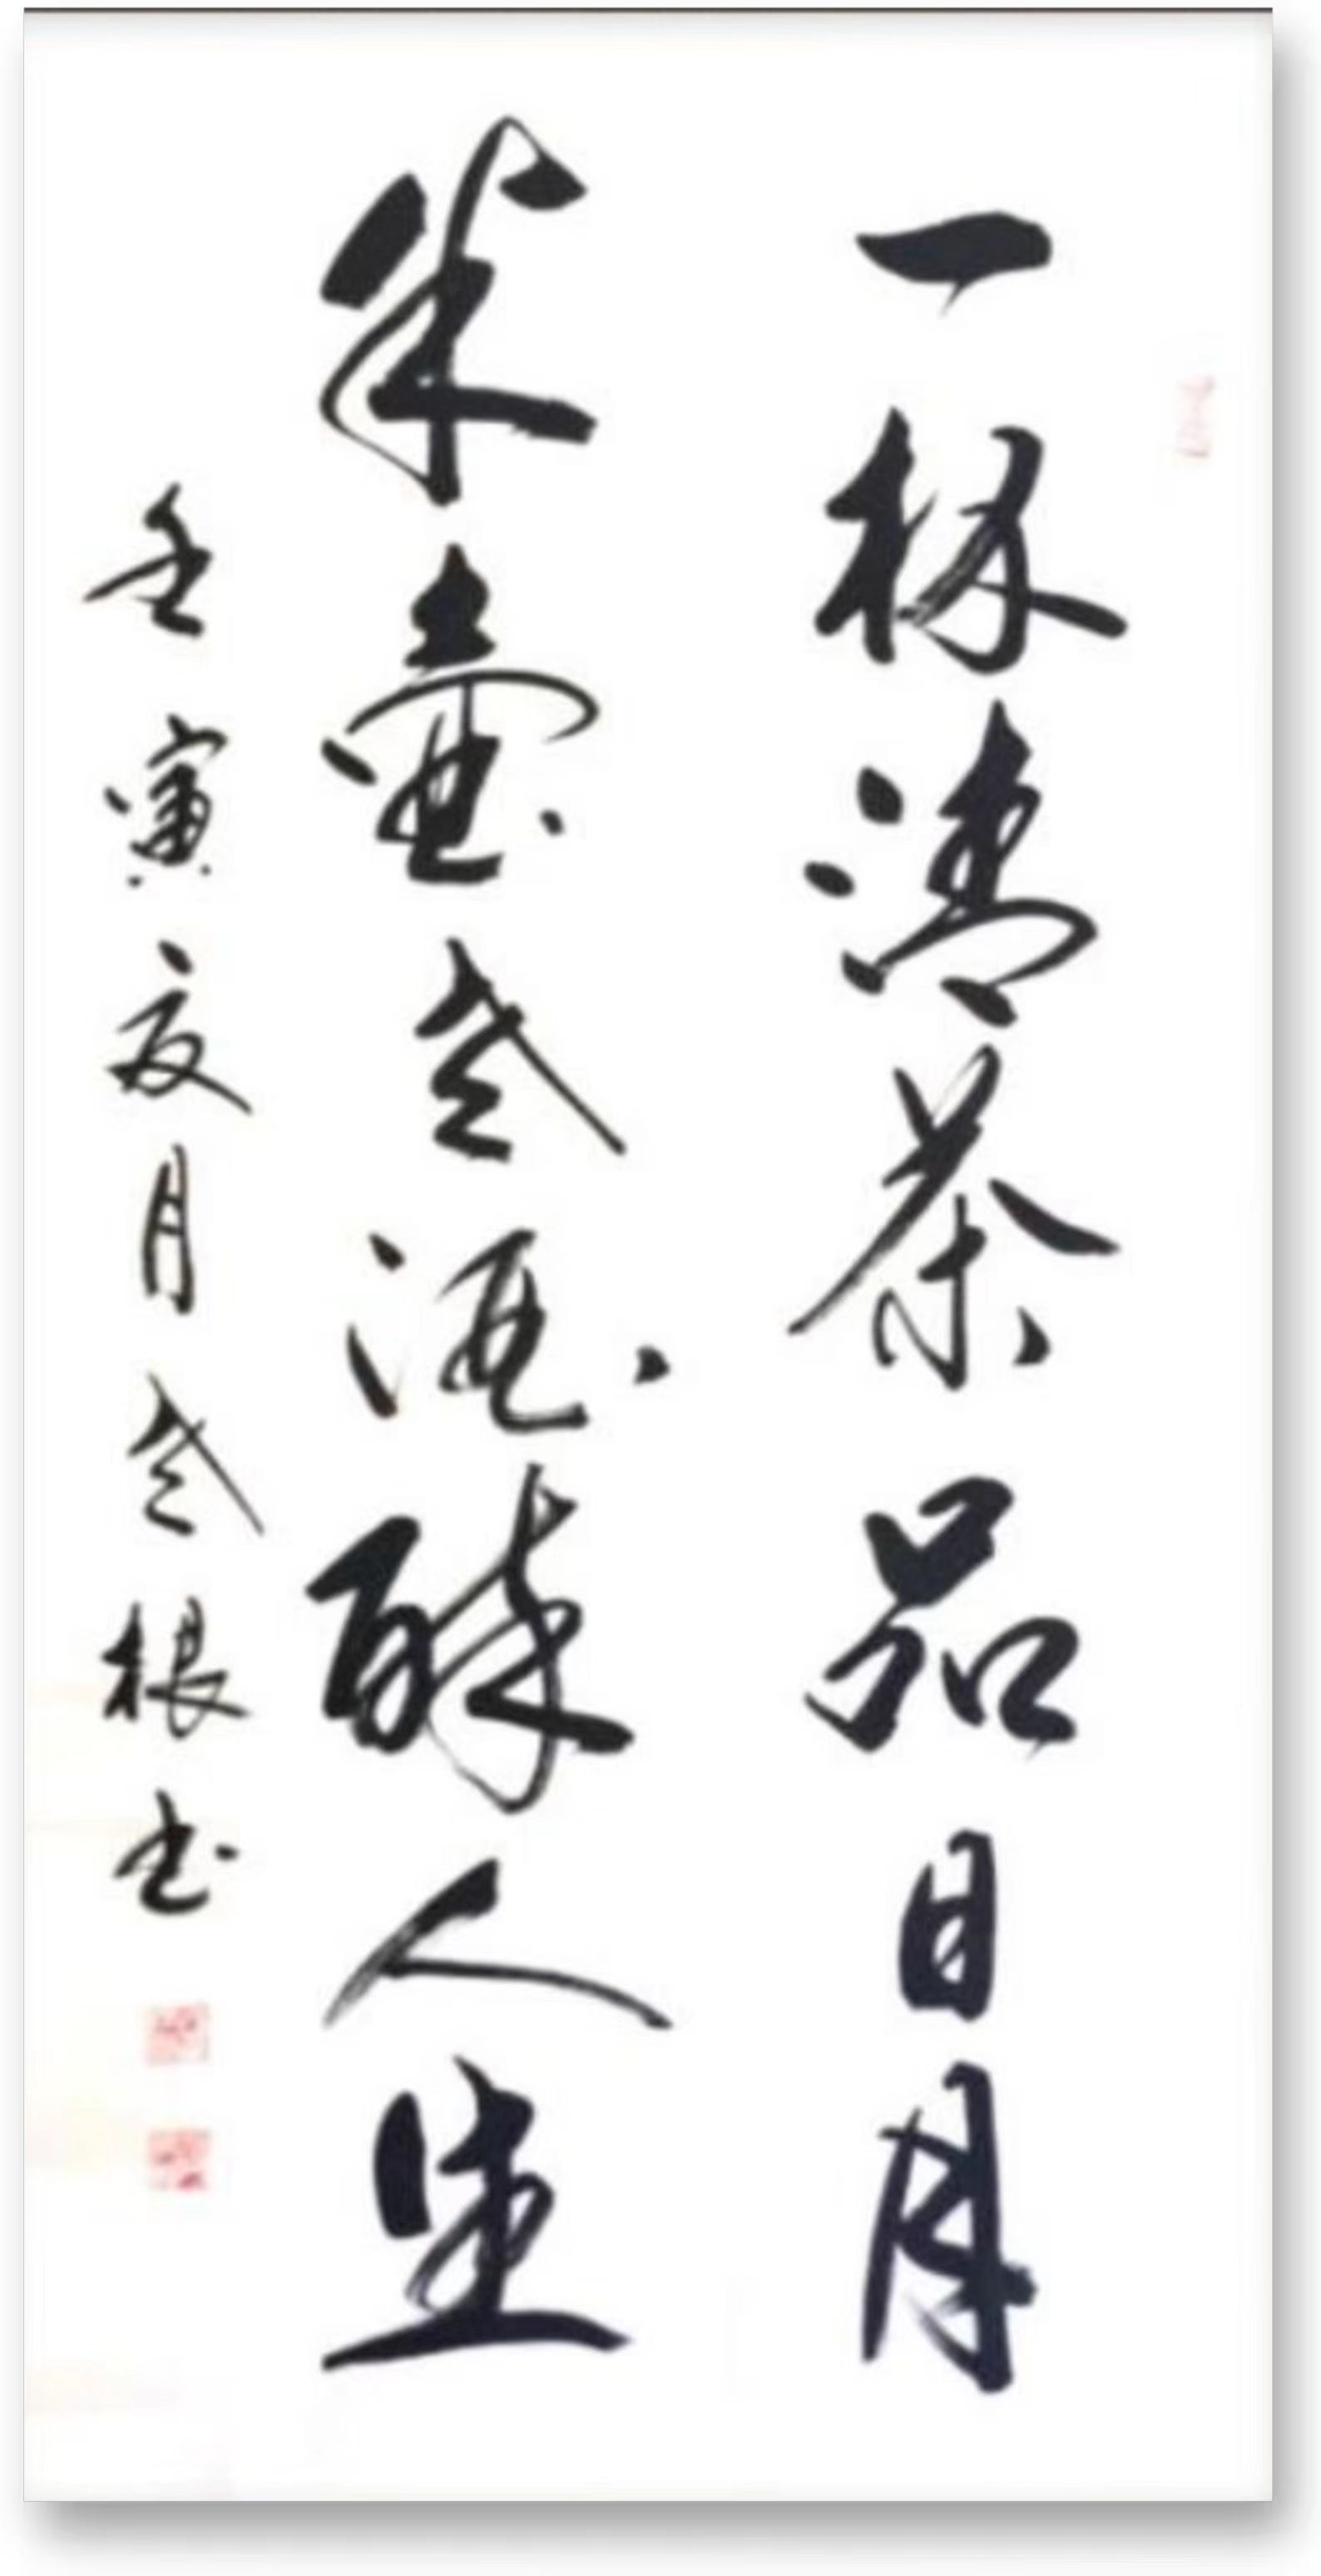 一杯清茶品日月
半壶老酒醉人生
壬寅夏月老根书